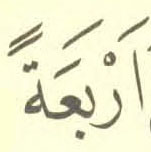 اَرْبَعَةً